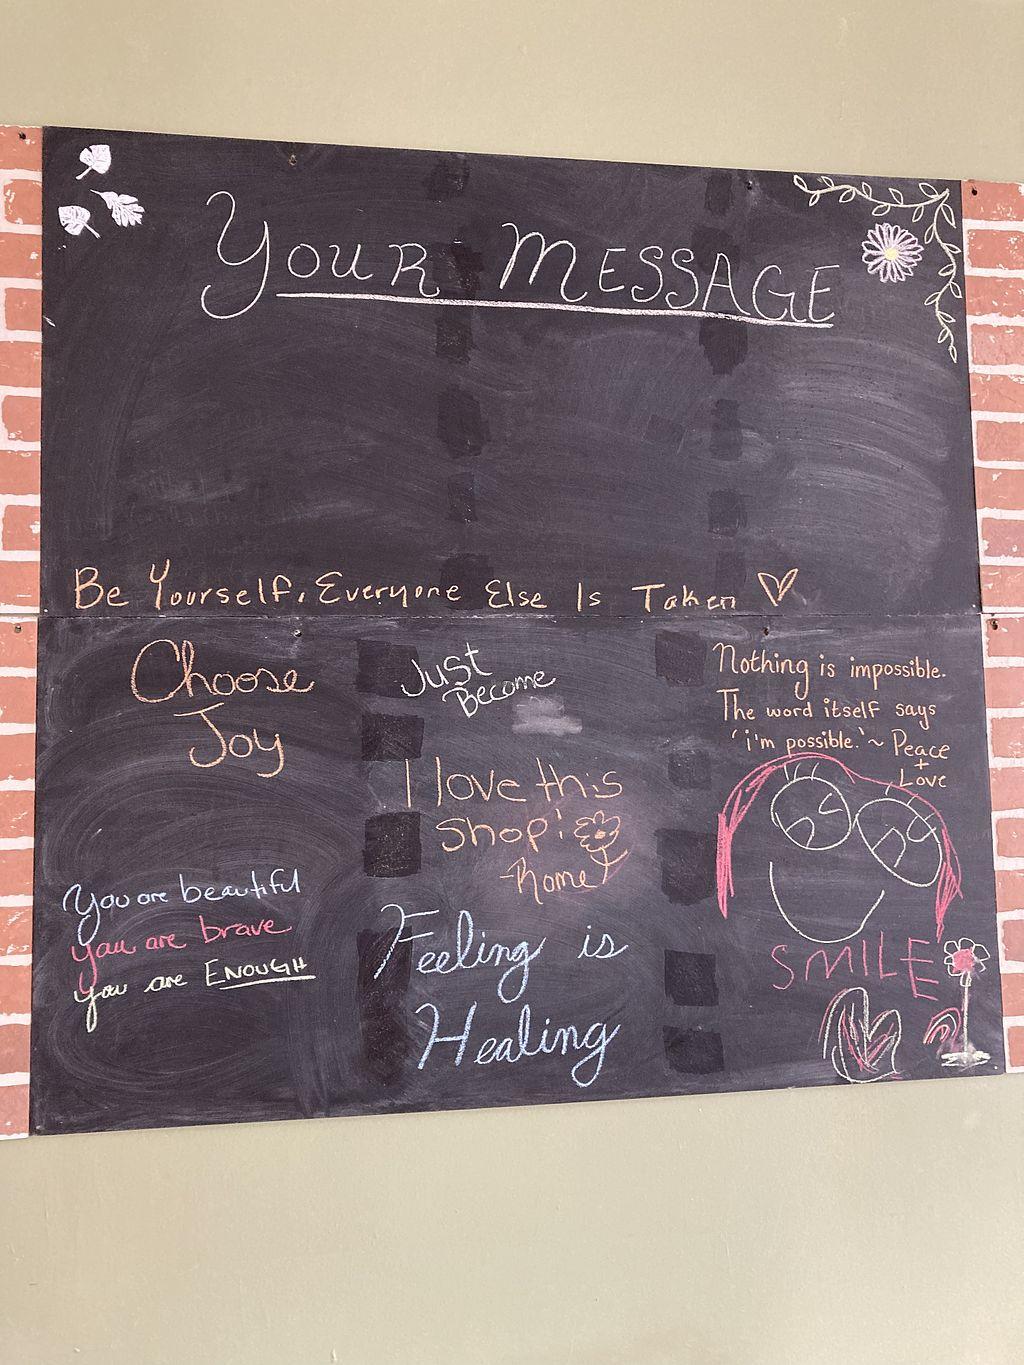 Your MESSAGE
Be Yourself, Everyone Else Is Taken
Choose
Joy
Just
Become
Nothing is impossible.
The word itself says
'i'm possible.' ~ Peace
+
Love
I love this
shop!
You are beautiful
you are brave
you are ENOUGH
Feeling is
Healing
SMILE